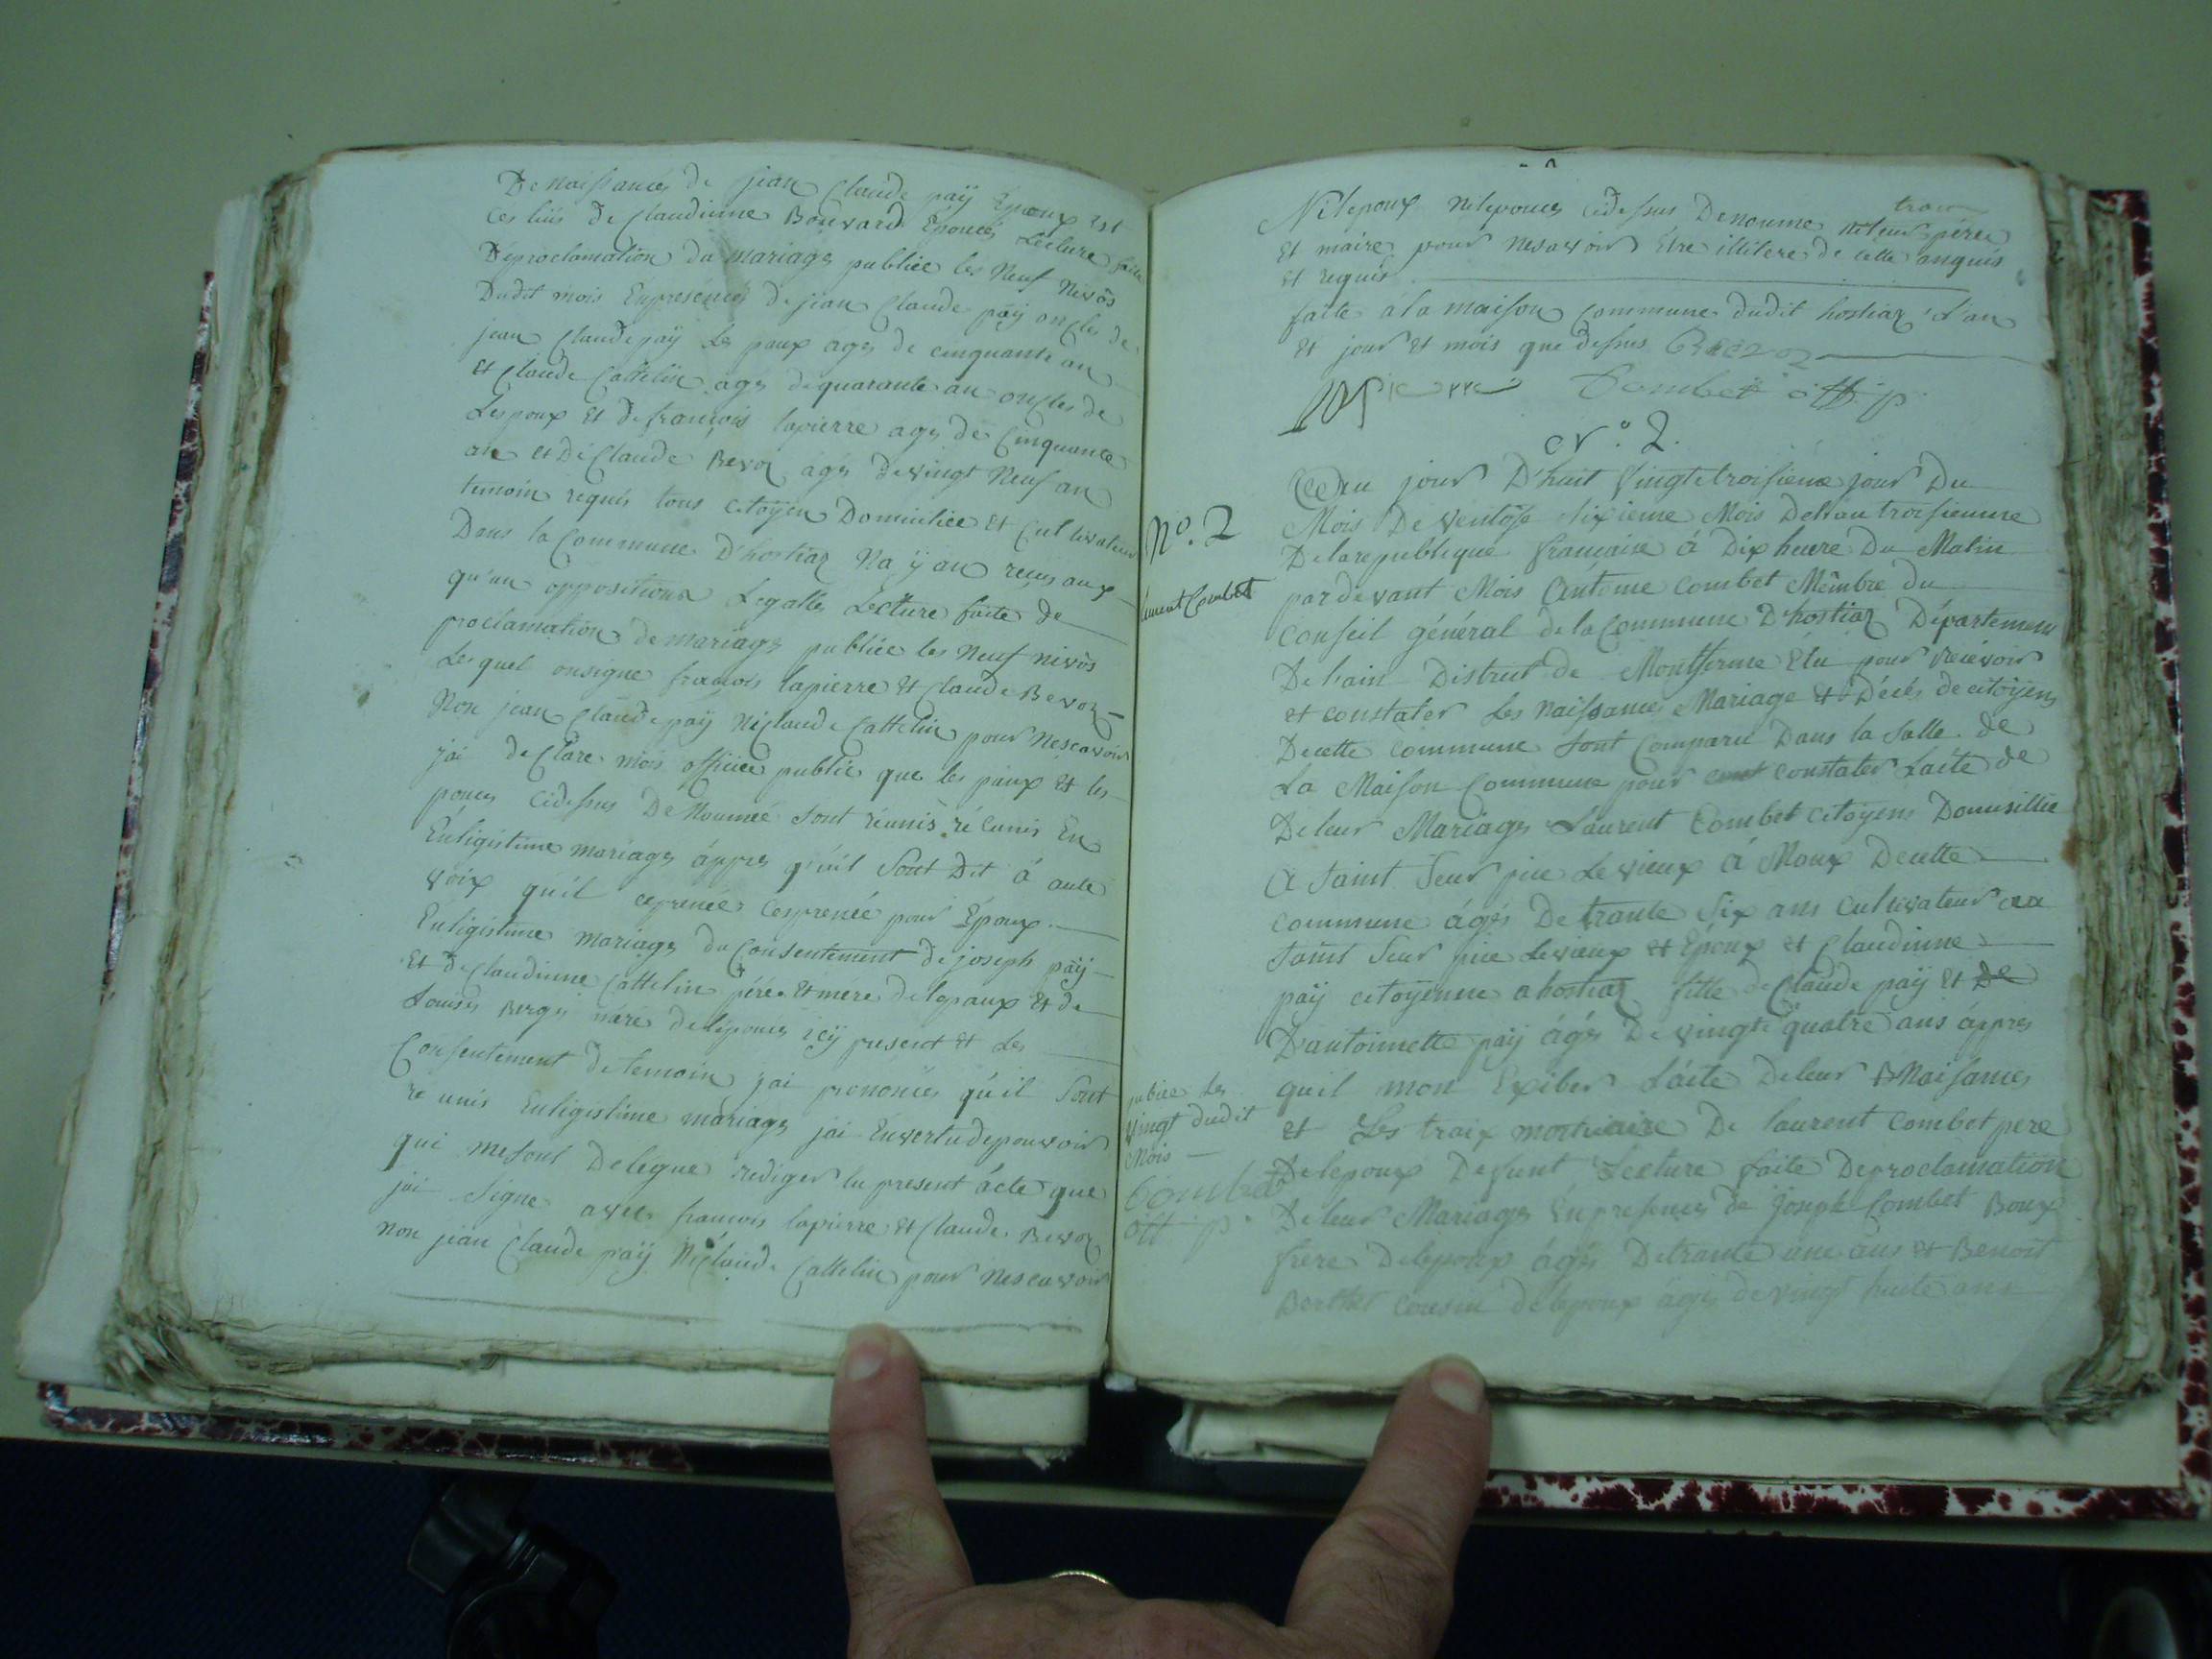 De naissances de jean Claude paÿ Epoux est
ces luis de Claudinne Bouvard Epouces Lecture faite
De proclamation du mariage publiee les Neuf Nivôs
Dudit mois En presences de jean Claude paÿ oncles de
jean Claude paÿ Les poux ages de cinquante an
Et Claude Cattelin ages de quarante an oncles de
Les poux Et de francois lapierre ages de Cinquance
an et De Claude Bevoz agés de vingt Neuf an
temoin requis tous citoÿen Domiciliee et Cultivateur
Dans la Commune D'hostiaz Na ÿ an recus aux
qu'un oppositions Legalles Lecture faite de
proclamation de mariage publiée les Neuf nivôs
Les quel on signe francois lapierre Et Claude Bevoz
Non jean Claude paÿ Ni Claude Cattelin pour Nescavoir
jai de Clare mois officiee public que les paux et les
pouces cidessus De Noumée sont réunis ré eunis En
Enligistime mariage áppres qu'il sont Dit á aute
voix qu'il ceprenée cesprenée pour Époux
Enligistime mariage du Consentement de joseph paÿ
Et de Claudinne Cattelin pére Et mere de lepaux Et de
Louises Berges mére de lépouces icÿ present et Les
Consentement de temoin jai prenonces qu'il sont
re unis Enligistime mariage jai En vertu de pouvoir
qui me sont Delégue rediger lu present ácte que
jai signe avec francois lapierre Et Claude Bevoz
non jean Claude paÿ Ni Claude Cattelin pour Nescavoir
Ni lepoux ne lepouces cidessus Denoume ne leur pére
Et maire pour nesavoir Etre illitere de cette anquis
et requis
faite a la maison Commune dudit hostiaz L'an
Et jour Et mois que dessus Bevoz
lapierre Combet off p
N.º 2.
Nº. 2
Laurent Combet
Au jour D'huit Vingt troisieme jour Du
Mois De ventôse sixieme Mois De l'an troisieme
De la republique francaise á Dix heure Du Matin
par devant Mois Antoine Combet Membre du
Conseil général de la Commune D'hostiaz Département
De l'ain District de Montferme Elu pour recevoir
et constater Les Naissances Mariage et Décés de citoÿens
De cette Commune sont Comparu Dans la salle de
La Maison Commune pour constater L'aite de
De leur Mariage Laurent Combet citoyens Domisillie
A saint Seur pice Le vieux á Moux De cette
Commune ágés De trante six ans Cultivateur au
saint Seur pice Le vieux et Epoux et Claudinne
paÿ citoÿenne a hostiaz fille de Claude paÿ et de
D'antoinnette paÿ ágés De vingte quatre ans áppres
qu'il mon Exiber L'aite De leur Naisances
et Les traix mortuaire De laurent Combet pere
De lepoux Defunt Lecture faite De proclamation
De leur Mariage En presences de joseph Combet Boux
frere De lepoux ágés De trante une ans et Benoit
Berthet cousin de lepoux áges de vingt huite ans
publiee Les
Vingt dudit
Mois
Combet
off p.